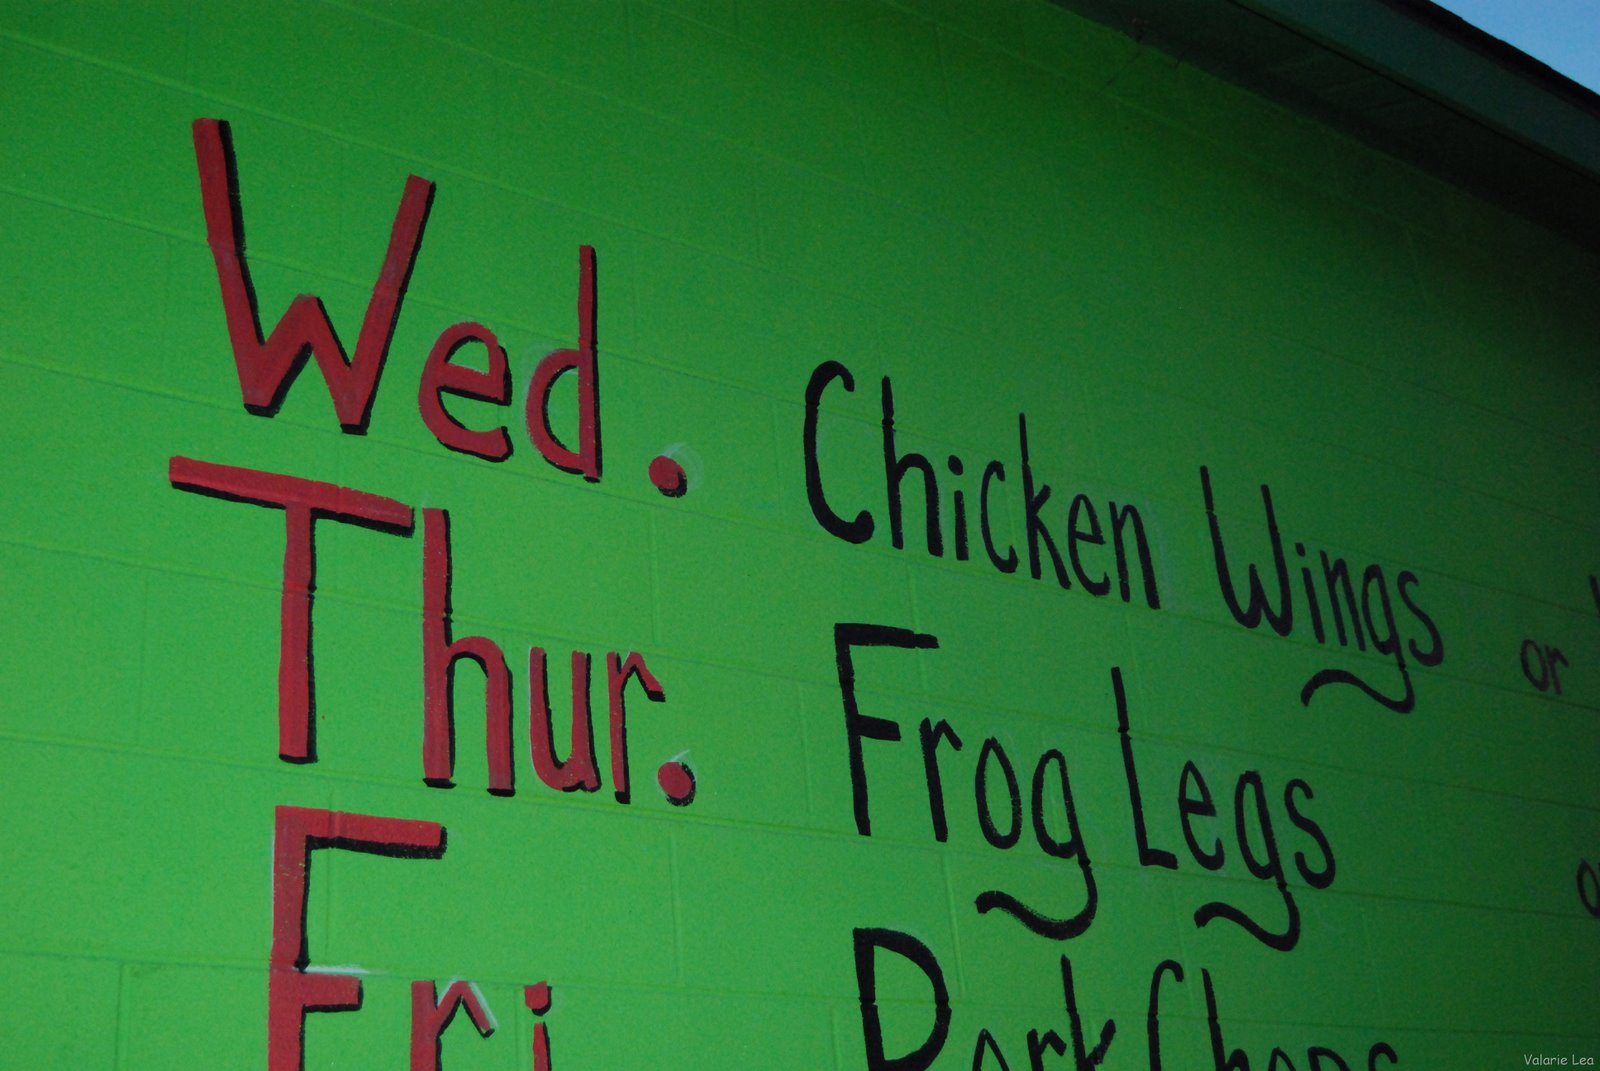 Wed. Chicken Wings or
Thur. Frog Legs
Fri Pork Chops
Valarie Lea